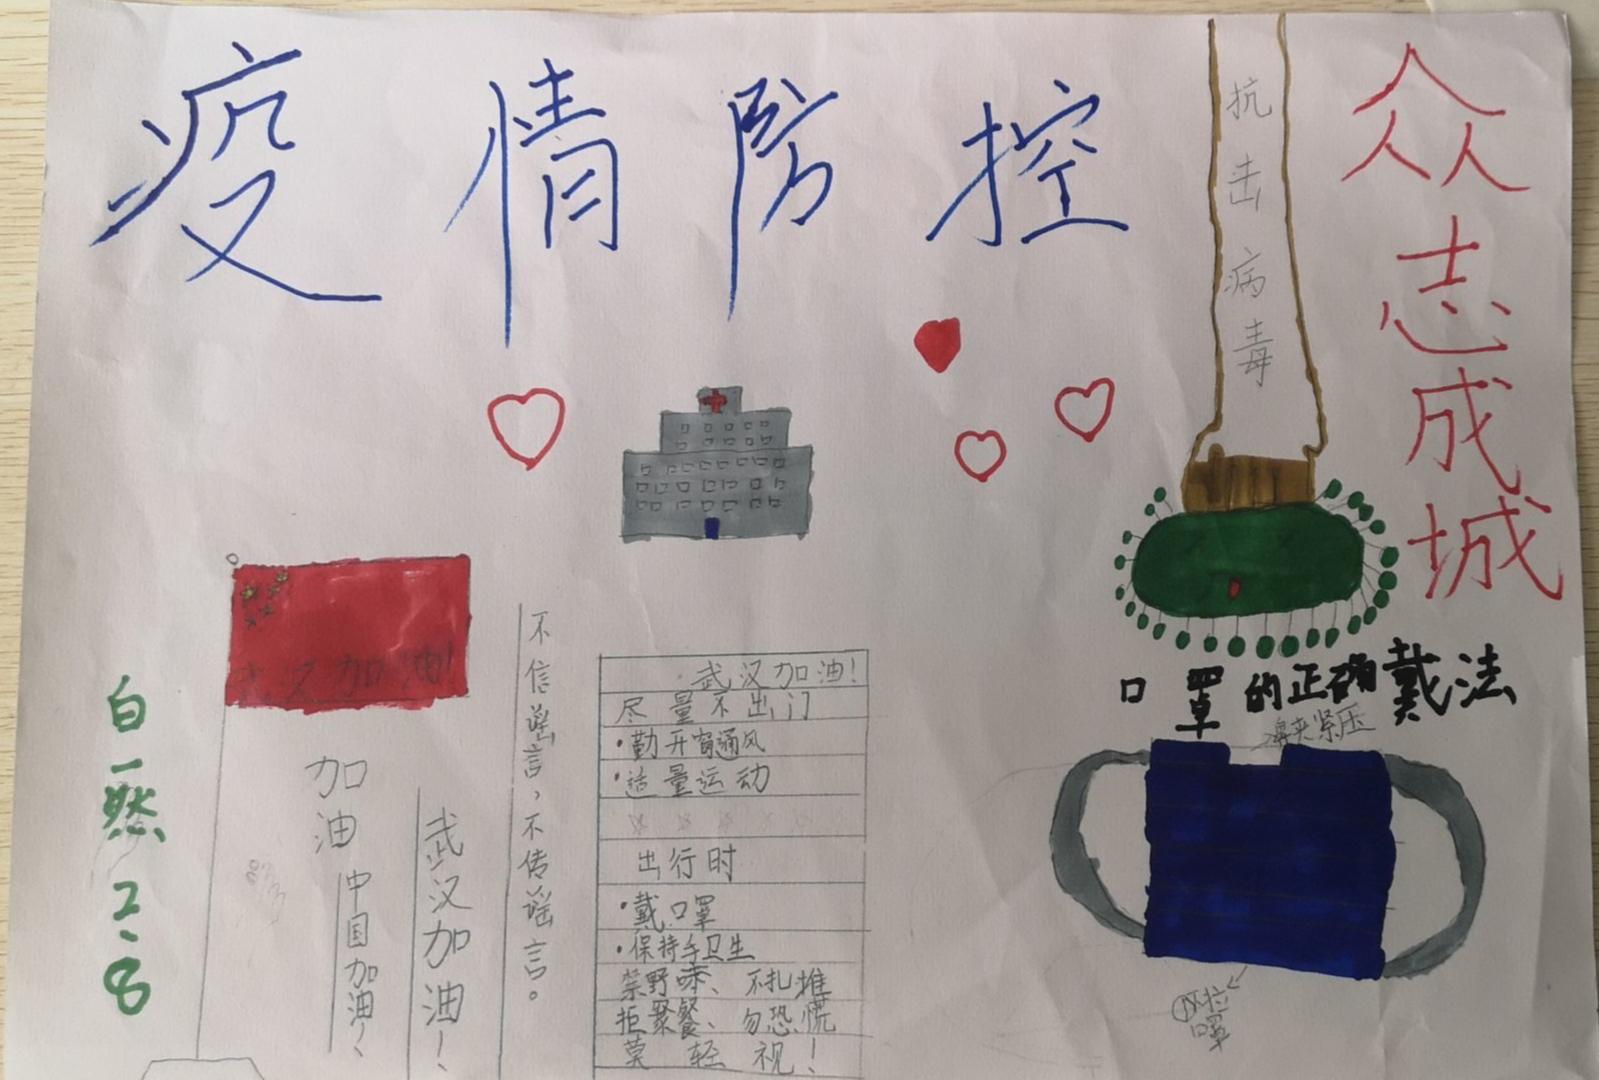 疫情防控
众志成城
抗击病毒
武汉加油！
白一然 2.8
加油
中国加油！
武汉加油！
不信谣言，不传谣言。
武汉加油！
尽量不出门
·勤开窗通风
·适量运动
出行时
·戴口罩
·保持手卫生
禁野味、不扎堆
拒聚餐、勿恐慌
莫轻视！
口罩的正确戴法
鼻夹紧压
口罩